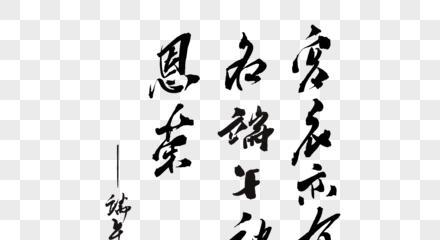 宫衣亦有
名端午被
恩荣
端午